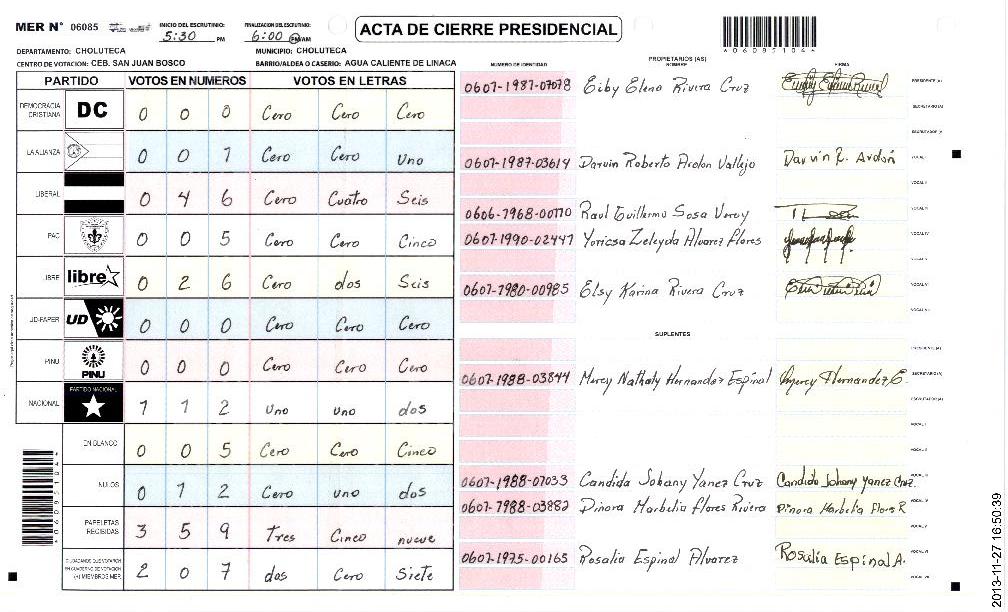 MER N° 06085 INICIO DEL ESCRUTINIO: 5:30 PM FINALIZACION DEL ESCRUTINIO: 6:00 PM/AM ACTA DE CIERRE PRESIDENCIAL
4060851044
DEPARTAMENTO: CHOLUTECA MUNICIPIO: CHOLUTECA
CENTRO DE VOTACION: CEB. SAN JUAN BOSCO BARRIO/ALDEA O CASERIO: AGUA CALIENTE DE LINACA
NUMERO DE IDENTIDAD PROPIETARIOS (AS) NOMBRE FIRMA
PARTIDO VOTOS EN NUMEROS VOTOS EN LETRAS
DEMOCRACIA CRISTIANA DC 0 0 0 Cero Cero Cero
LA ALIANZA 0 0 1 Cero Cero uno
LIBERAL 0 4 6 Cero Cuatro Seis
PAC 0 0 5 Cero Cero Cinco
LIBRE libre 0 2 6 Cero dos Seis
UD-FAPER UD 0 0 0 Cero Cero Cero
PINU PINU 0 0 0 Cero Cero Cero
NACIONAL PARTIDO NACIONAL 1 1 2 uno uno dos
EN BLANCO 0 0 5 Cero Cero Cinco
NULOS 0 1 2 Cero uno dos
PAPELETAS RECIBIDAS 3 5 9 Tres Cinco nueve
CIUDADANOS QUE VOTARON EN CUADERNO DE VOTACION (+) MIEMBROS MER 2 0 7 dos Cero Siete
0607-1987-07078 Eiby Elena Rivera Cruz PRESIDENTE (A)
SECRETARIO (A)
0607-1987-03614 Darvin Roberto Ardon Vallejo Darvin R. Ardón VOCAL I
VOCAL II
0606-1968-00770 Raul Guillermo Sosa VOCAL III
0607-1990-02447 Yoricsa Zeleyda Alvarez Flores VOCAL IV
VOCAL V
0607-1980-00985 Elsy Karina Rivera Cruz VOCAL VI
SUPLENTES
PRESIDENTE (A)
0607-1988-03844 Mercy Nathaly Hernandez Espinal Mercy Hernandez E. SECRETARIO (A)
ESCRUTADOR (A)
VOCAL I
VOCAL II
0607-1988-07033 Candida Johany Yanez Cruz Candida Johany Yanez Cruz VOCAL III
0607-1988-03882 Dinora Marbelia Flores Rivera Dinora Marbelia Flores R VOCAL IV
VOCAL V
0607-1975-00165 Rosalia Espinal Alvarez Rosalia Espinal A. VOCAL VI
VOCAL VII
2013-11-27 16:50:39